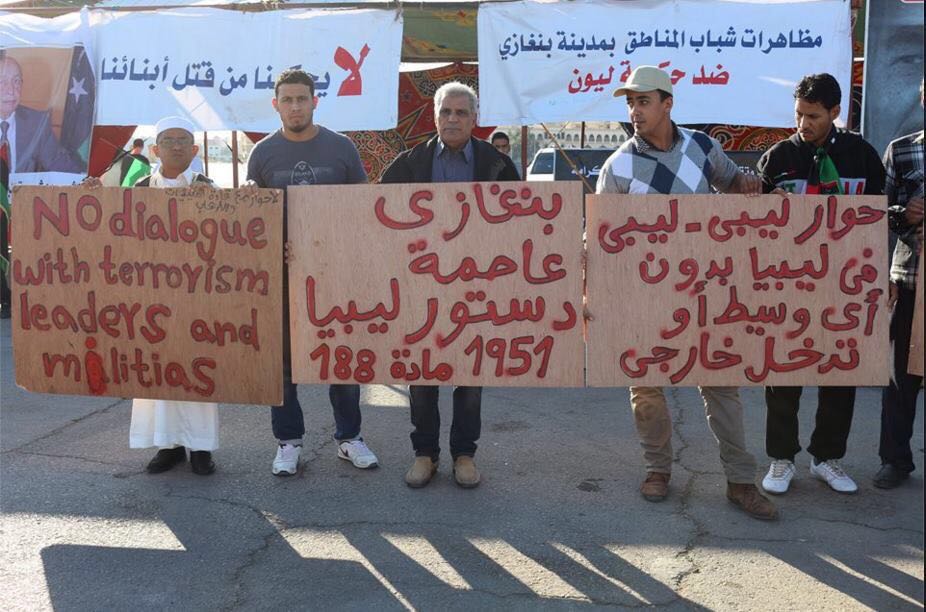 لا يحكمنا من قتل أبنائنا
مظاهرات شباب المناطق بمدينة بنغازي
ضد حكومة ليون
لا حوار مع قادة
والارهاب
NO dialogue
with terroyism
leaders and
militias
بنغازي
عاصمة
دستور ليبيا
1951 مادة 188
حوار ليبى - ليبى
فى ليبيا بدون
أى وسيط أو
تدخل خارجى